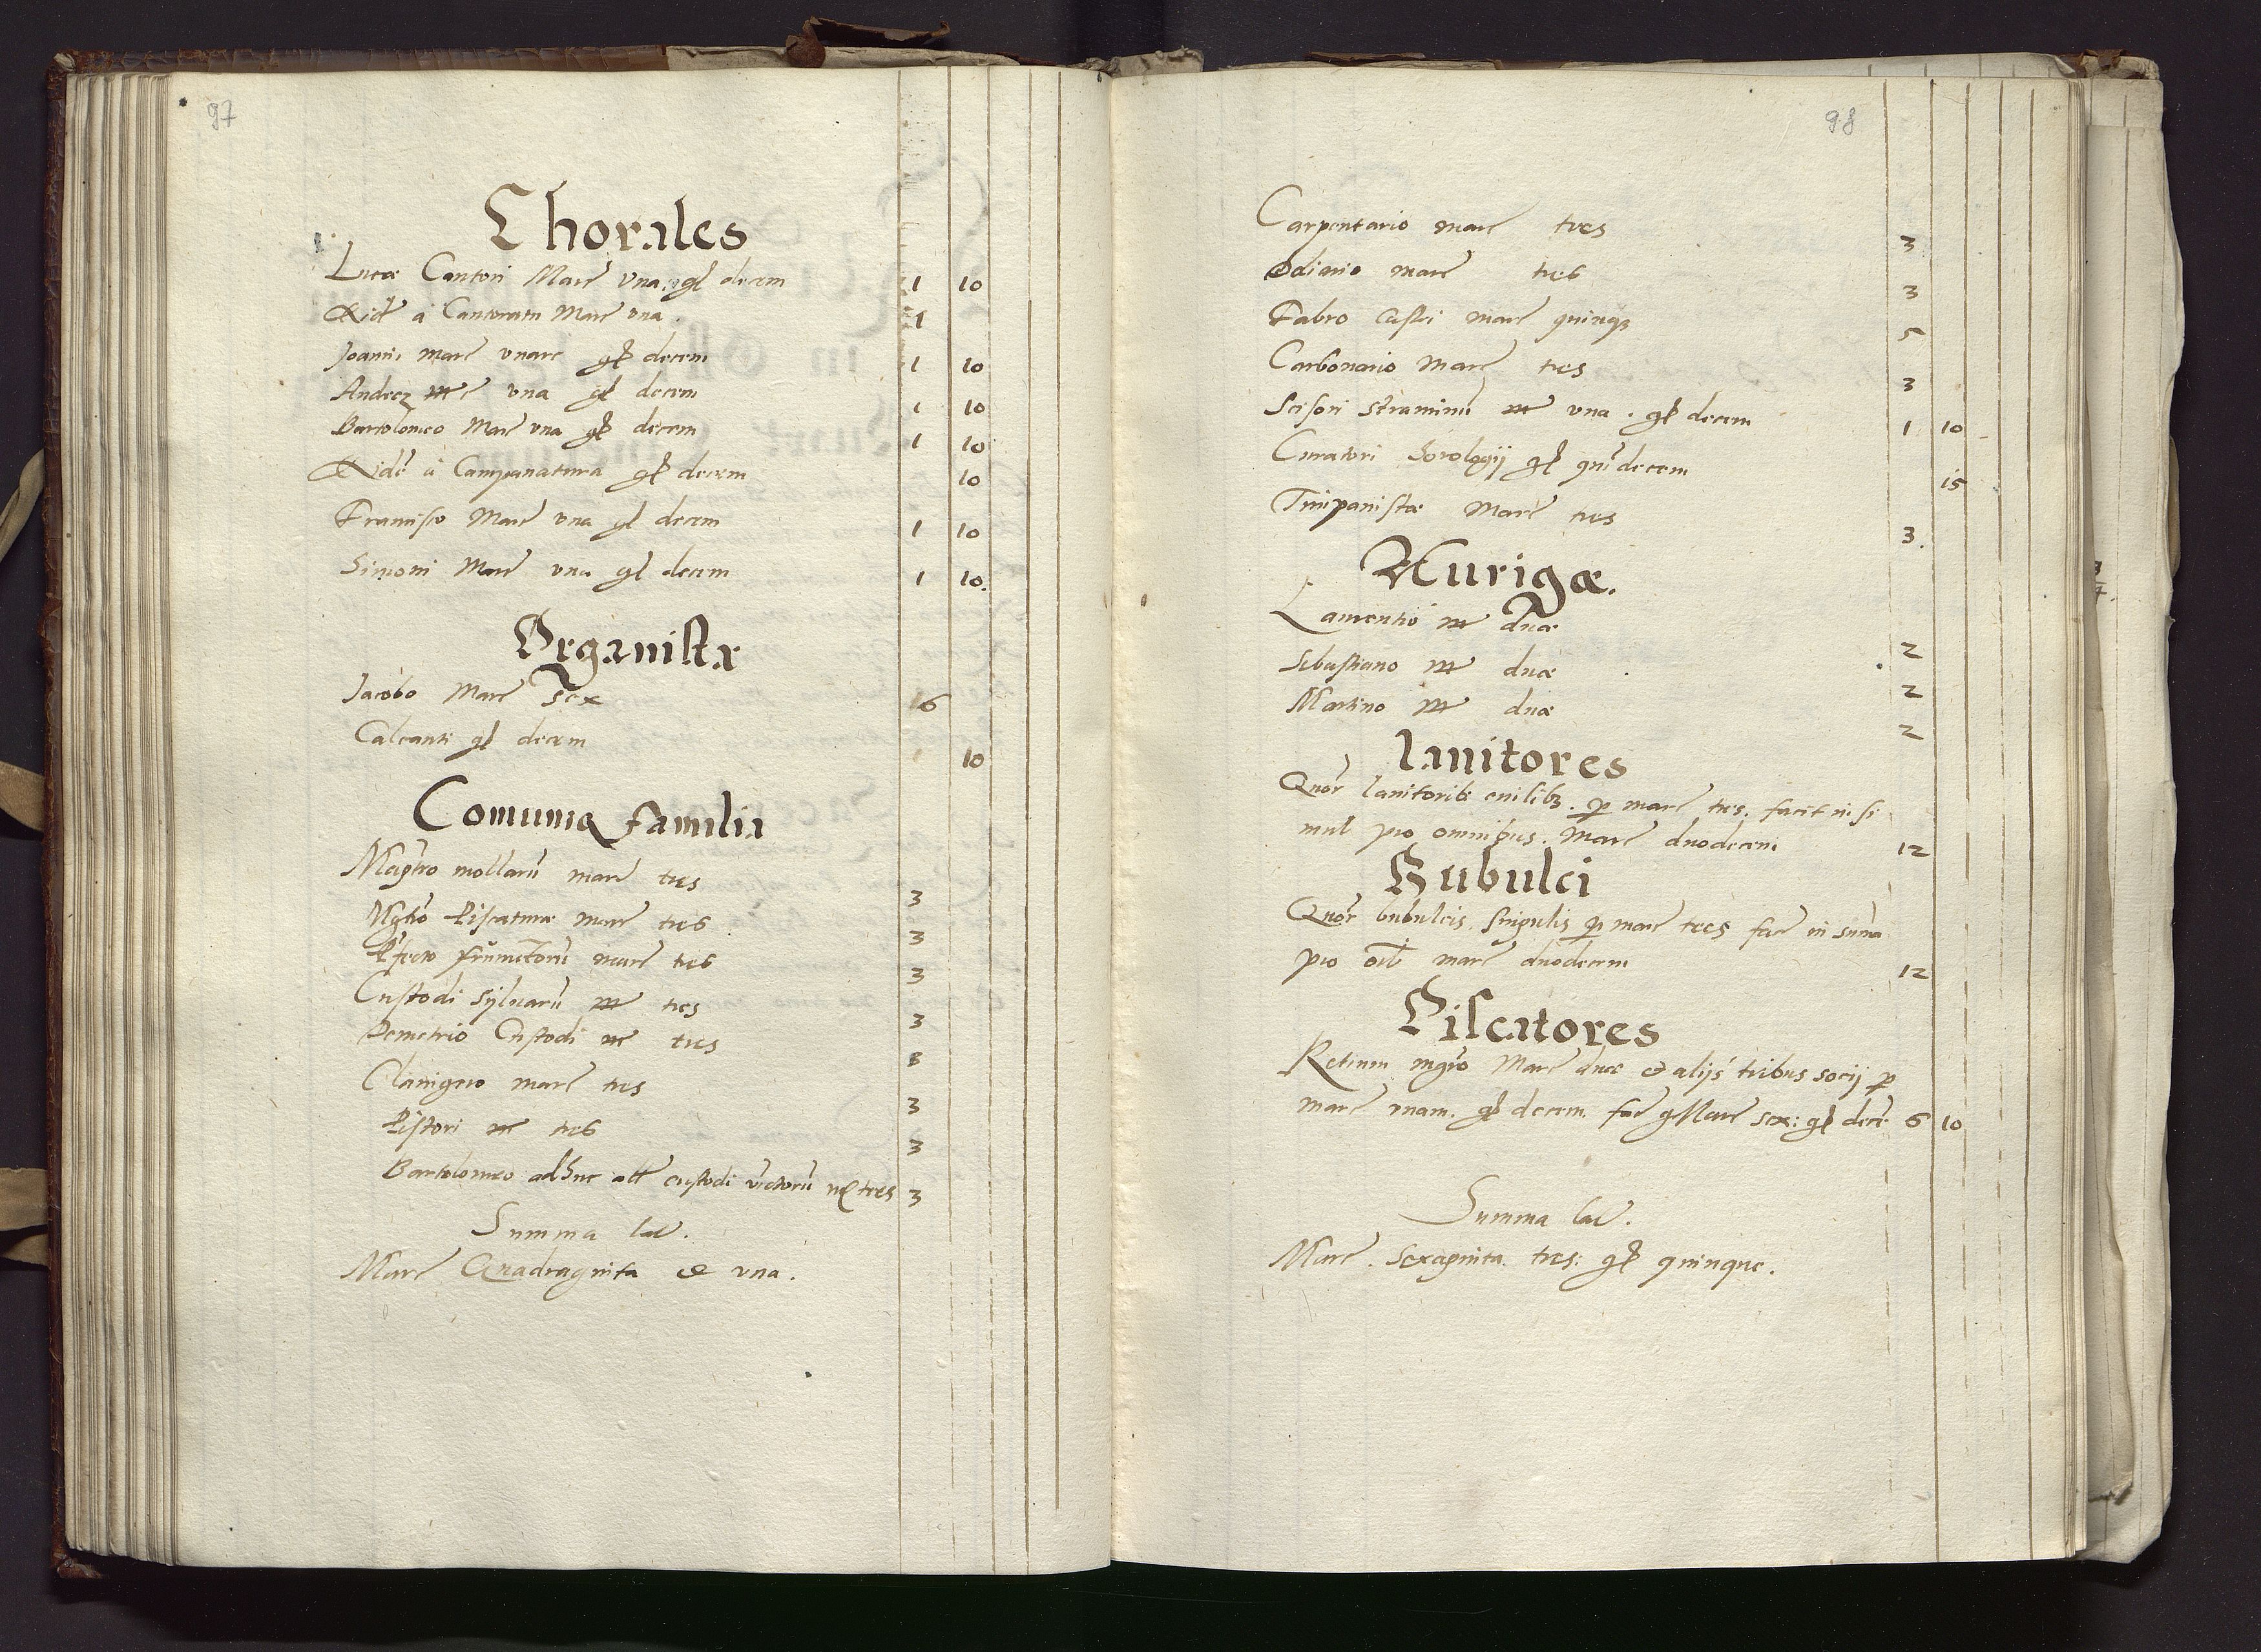 97
Chorales
Lucæ Cantori Marc̄ Vna. gl̃ decem 1 10
Eidē à Cantoratu Marc̄ vna. 1
Joanni marc̄ vnare gl̃ decem 1 10
una gl̃ decem 1 10
Bartolomeo Marc̄ vna gl̃ decem 1 10
Eidē à Campanatura gl̃ decem 10
Francisco Marc̄ vna gl̃ decem 1 10
Simoni Marc̄ vna gl̃ decem 1 10.
Organistæ
Jacobo Marc̄ sex 6
Calcanti gl̃ decem 10
Comunis familia
Magr̄o mollarū marc̄ tres 3
Mgr̄o Piscaturæ marc̄ tres 3
Pf̄ecto frūmētorū marc̄ tres 3
Custodi sylvarū mr̄ tres 3
Demetrio Custodi mr̄ tres 3
Clauigero marc̄ tres 3
Pistori mr̄ tres 3
Bartolomeo adhuc custodi tres 3
Summa lat̄.
Marc̄ Quadraginta & vna.
98
Carpentario marc̄ tres 3
Edinio marc̄ tres 3
Fabro castri marc̄ quinq3 5
Carbonario Marc̄ tres 3
Scisori straminū mr̄ vna. gl̃ decem 1 10
Curatori horologij gl̃ quīdecem 15
Timpanistæ Marc̄ tres 3.
Aurigæ.
Laurentio mr̄ duæ 2
Sebastiano mr̄ duæ 2
Martino mr̄ duæ 2
Ianitores
Quor̄ Ianitorib. p marc̄ tres. facit in si
mul pro omnibus. Marc̄ duodecem 12
Bubulci
Quor̄ bubulcis. singulis p marc̄ tres fac̄ in sūma
pro oīb marc̄ duodecem 12
Piscatores
Retium mgr̄o Marc̄ duæ & alijs tribus socij p
marc̄ vnam. gl̃ decem. fac̄ Marc̄ sex: gl̃ decē 6 10
Summa lat̄.
Marc̄. Sexaginta. tres: gl̃ quinque.